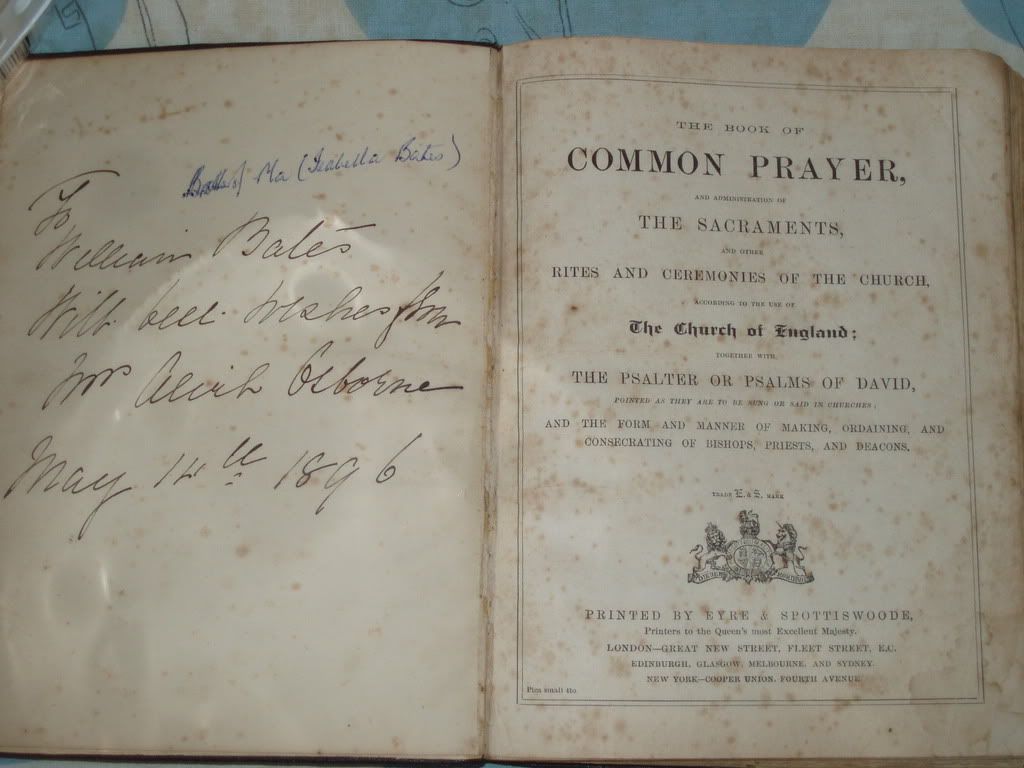 Ma (Isabella Bates)
To
William Bates
With best wishes from
Mrs Osborne
May 14th 1896
THE BOOK OF
COMMON PRAYER,
AND ADMINISTRATION OF
THE SACRAMENTS,
AND OTHER
RITES AND CEREMONIES OF THE CHURCH,
ACCORDING TO THE USE OF
The Church of England;
TOGETHER WITH
THE PSALTER OR PSALMS OF DAVID,
POINTED AS THEY ARE TO BE SUNG OR SAID IN CHURCHES;
AND THE FORM AND MANNER OF MAKING, ORDAINING, AND
CONSECRATING OF BISHOPS, PRIESTS, AND DEACONS.
TRADE E. & S. MARK
PRINTED BY EYRE & SPOTTISWOODE,
Printers to the Queen's most Excellent Majesty.
LONDON—GREAT NEW STREET, FLEET STREET, E.C.
EDINBURGH, GLASGOW, MELBOURNE, AND SYDNEY.
NEW YORK—COOPER UNION, FOURTH AVENUE.
Pica small 4to.